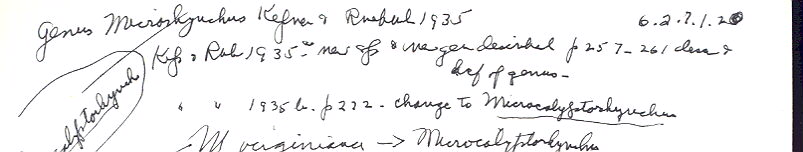 Genus Microrhynchus Kepner & Ruebush 1935 6.2.7.1.20
Kep & Rub 1935 new sp & new gen described p 257-261 desc &
def of genus -
" " 1935 b. p 272 - change to Microcalyptorhynchus
M virginiana → Microcalyptorhynchus